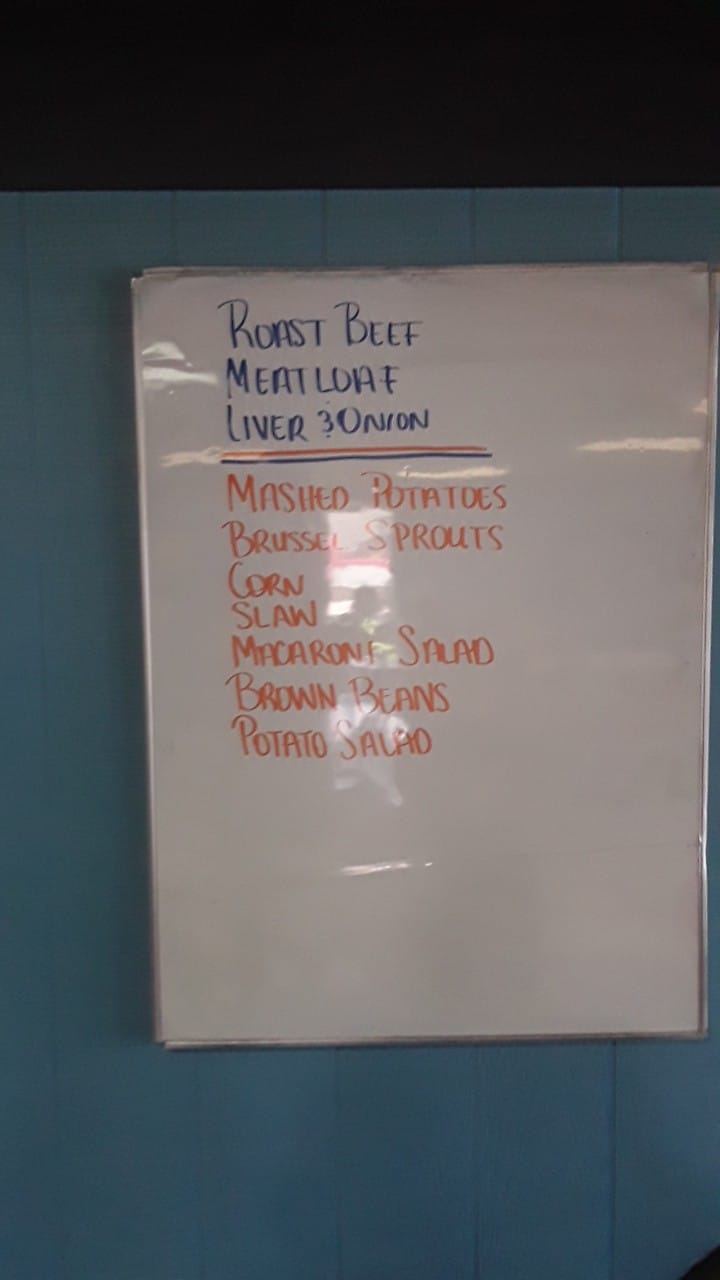 ROAST BEEF
MEATLOAF
LIVER & ONION
MASHED POTATOES
BRUSSEL SPROUTS
CORN
SLAW
MACARONI SALAD
BROWN BEANS
POTATO SALAD